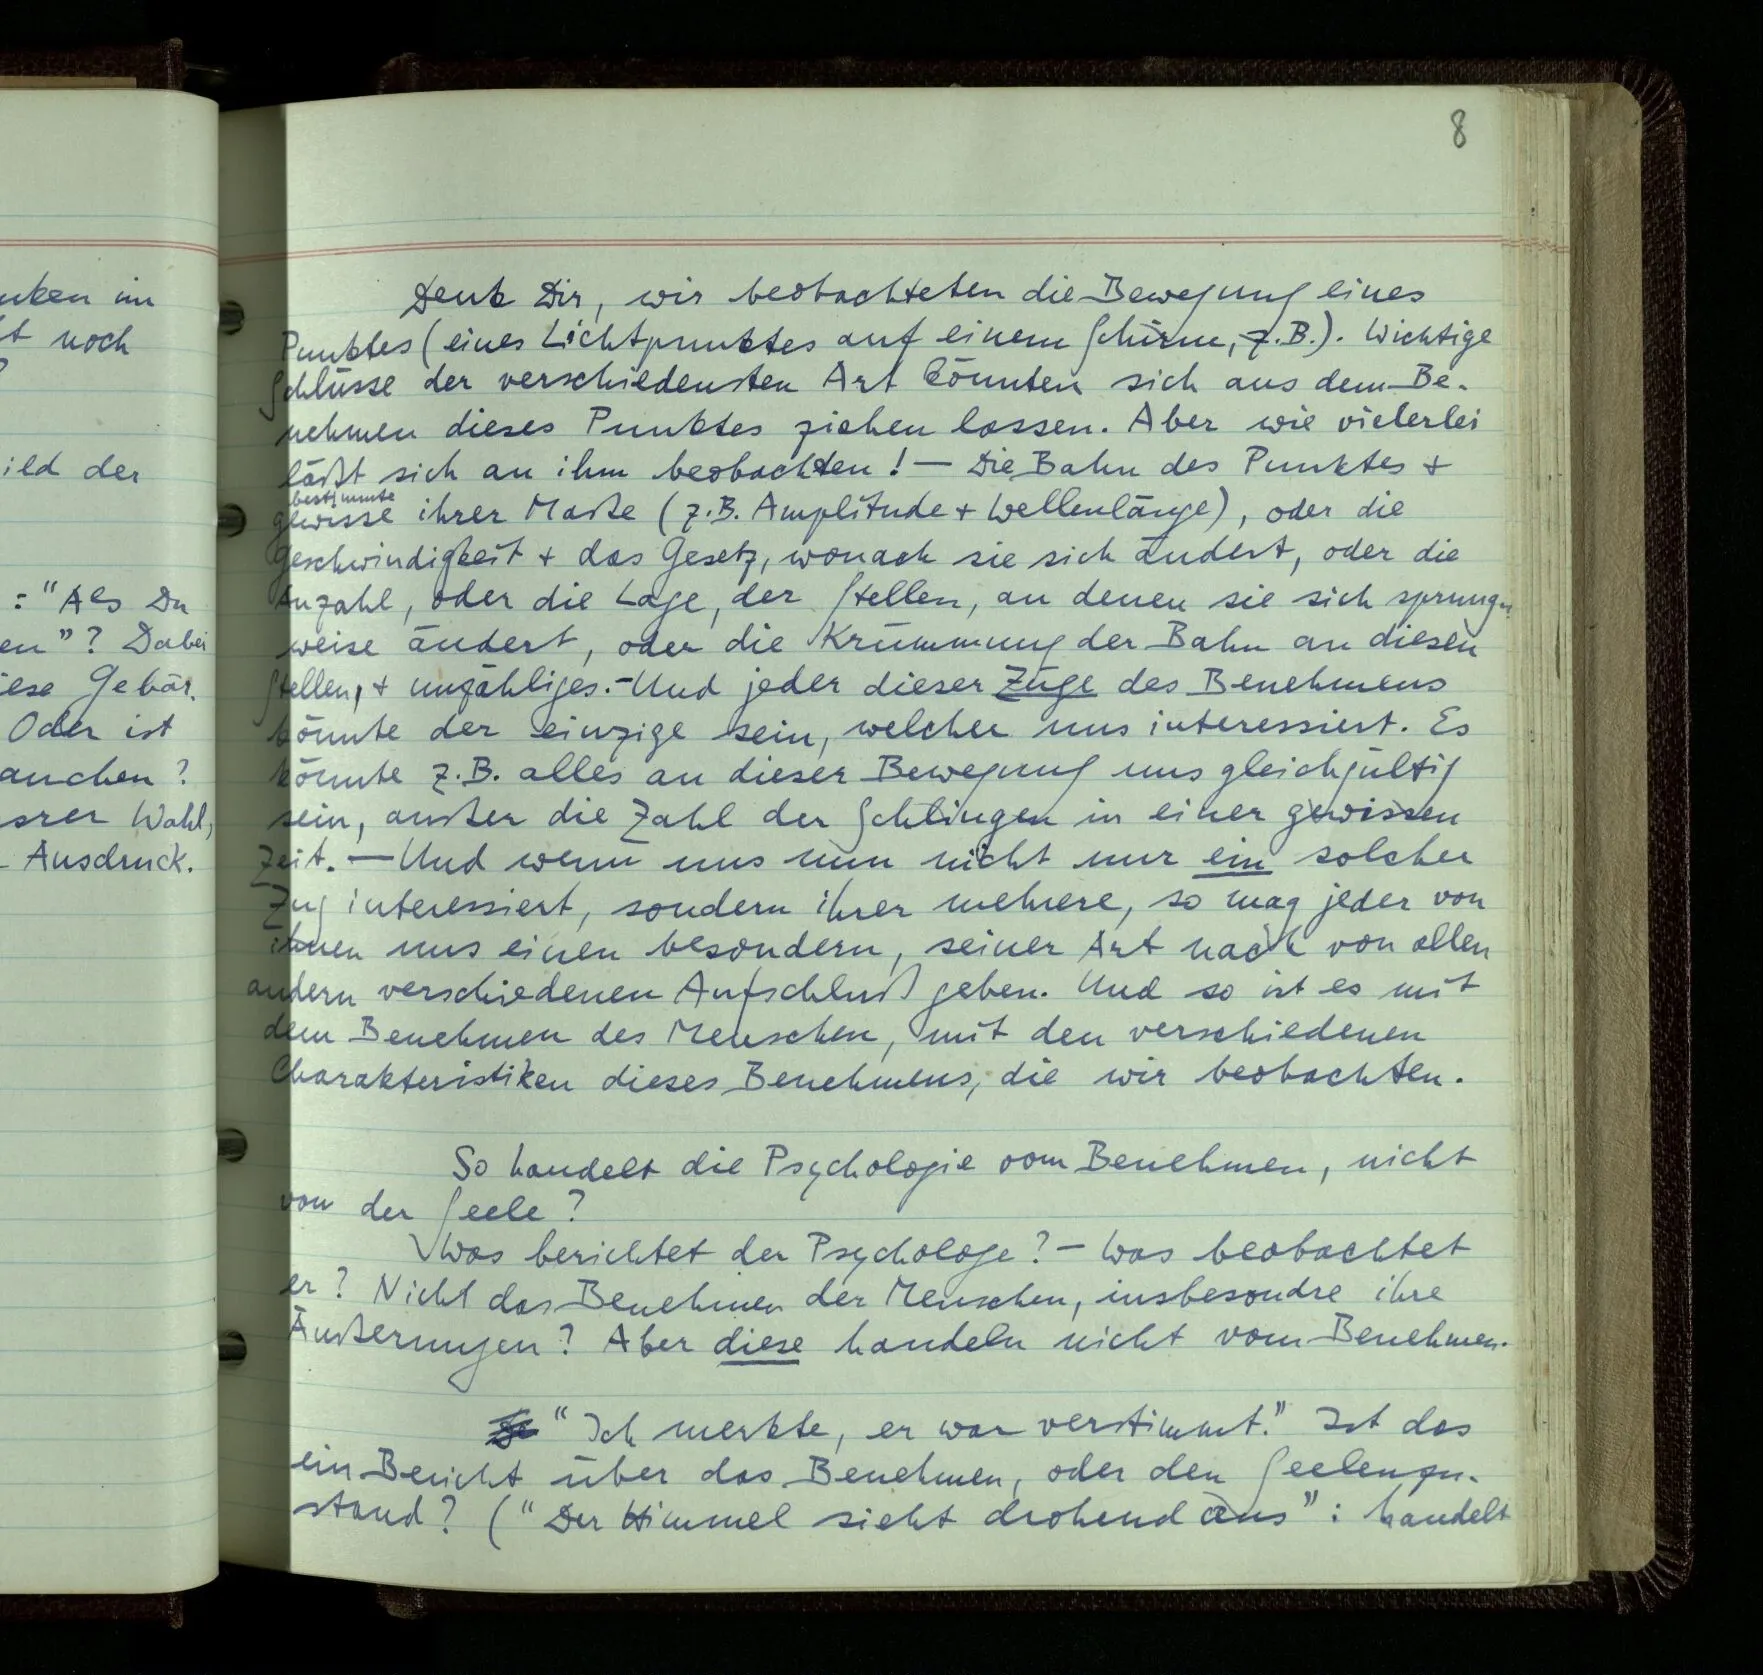 8
nken im
t noch
?
ild der
: "Als Du
en"? Dabei
iese Gebär-
Oder ist
auchen?
srer Wahl,
Ausdruck.
Denk Dir, wir beobachteten die Bewegung eines
Punktes (eines Lichtpunktes auf einem Schirm, z.B.). Wichtige
Schlüsse der verschiedensten Art könnten sich aus dem Be-
nehmen dieses Punktes ziehen lassen. Aber wie vielerlei
läßt sich an ihm beobachten! — Die Bahn des Punktes +
bestimmte
gewisse ihrer Maße (z.B. Amplitude + Wellenlänge), oder die
Geschwindigkeit + das Gesetz, wonach sie sich ändert, oder die
Anzahl, oder die Lage, der Stellen, an denen sie sich sprung-
weise ändert, oder die Krümmung der Bahn an diesen
Stellen, + unzähliges. – Und jeder dieser Züge des Benehmens
könnte der einzige sein, welcher uns interessiert. Es
könnte z.B. alles an dieser Bewegung uns gleichgültig
sein, außer die Zahl der Schlingen in einer gewissen
Zeit. — Und wenn uns nun nicht nur ein solcher
Zug interessiert, sondern ihrer mehrere, so mag jeder von
ihnen uns einen besondern, seiner Art nach von allen
andern verschiedenen Aufschluß geben. Und so ist es mit
dem Benehmen des Menschen, mit den verschiedenen
Charakteristiken dieses Benehmens, die wir beobachten.
So handelt die Psychologie vom Benehmen, nicht
von der Seele?
Was berichtet der Psychologe? – Was beobachtet
er? Nicht das Benehmen der Menschen, insbesondre ihre
Äußerungen? Aber diese handeln nicht vom Benehmen.
"Ich merkte, er war verstimmt." Ist das
ein Bericht über das Benehmen, oder den Seelenzu-
stand? ("Der Himmel sieht drohend aus": handelt